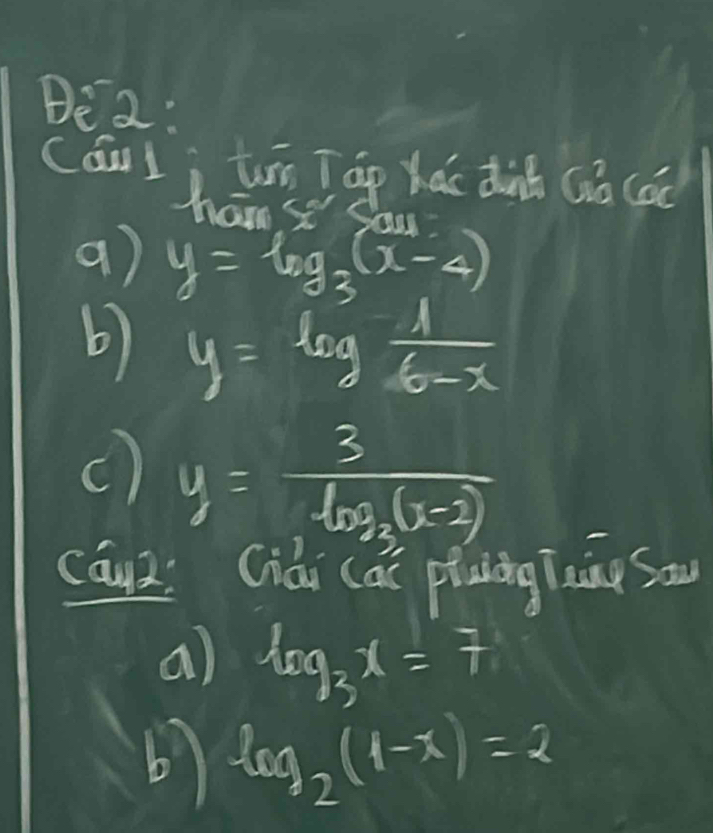 Đề 2:
Câu 1: tìm Tập xác định của các
hàm số sau:
a) y = log₃(x-4)
b) y = log 1/(6-x)
c) y = 3/(log₃(x-2))
Câu 2: Giải các phương Trình Sau
a) log₃x = 7
b) log₂(1-x) = 2